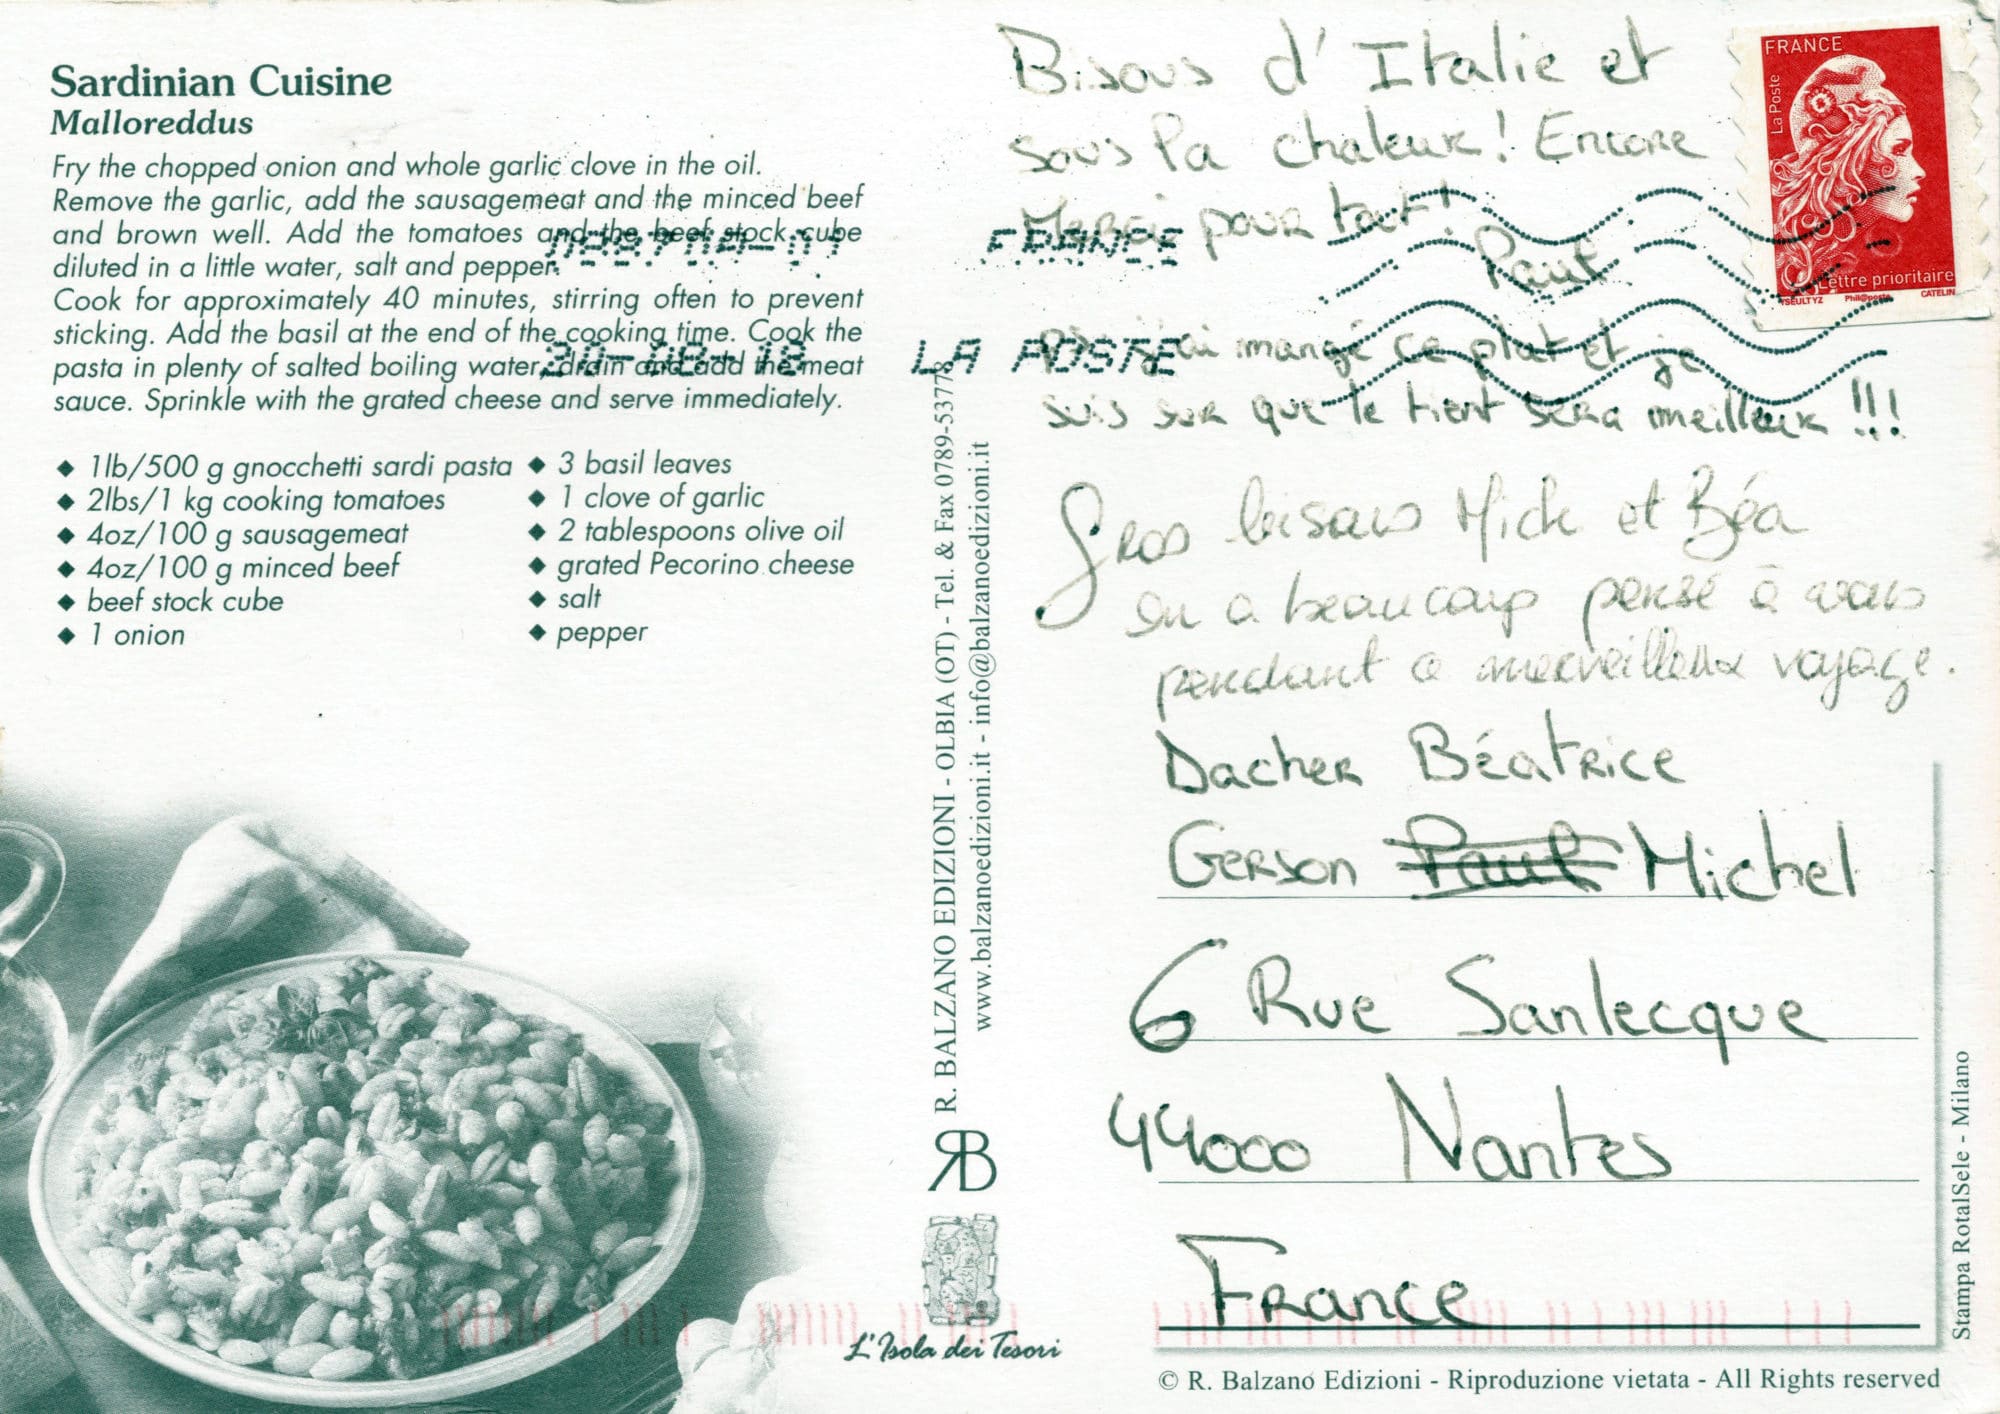 Sardinian Cuisine
Malloreddus
Fry the chopped onion and whole garlic clove in the oil.
Remove the garlic, add the sausagemeat and the minced beef
and brown well. Add the tomatoes and the beef stock cube
diluted in a little water, salt and pepper.
Cook for approximately 40 minutes, stirring often to prevent
sticking. Add the basil at the end of the cooking time. Cook the
pasta in plenty of salted boiling water, drain and add the meat
sauce. Sprinkle with the grated cheese and serve immediately.
◆ 1lb/500 g gnocchetti sardi pasta
◆ 2lbs/1 kg cooking tomatoes
◆ 4oz/100 g sausagemeat
◆ 4oz/100 g minced beef
◆ beef stock cube
◆ 1 onion
◆ 3 basil leaves
◆ 1 clove of garlic
◆ 2 tablespoons olive oil
◆ grated Pecorino cheese
◆ salt
◆ pepper
FRANCE
LA POSTE
R. BALZANO EDIZIONI - OLBIA (OT) - Tel. & Fax 0789-53778
www.balzanoedizioni.it - info@balzanoedizioni.it
RB
L'Isola dei Tesori
Bisous d'Italie et
sous la chaleur! Encore
Merci pour tout!
Paul
PS: j'ai mangé ce plat et je
suis sur que le tient sera meilleur !!!
Gros bisous Mick et Béa
on a beaucoup pensé à vous
pendant ce merveilleux voyage.
Dacher Béatrice
Gerson Paul Michel
6 Rue Sanlecque
44000 Nantes
France
FRANCE
La Poste
Lettre prioritaire
YSEULT YZ Phil@poste CATELIN
Stampa RotalSele - Milano
© R. Balzano Edizioni - Riproduzione vietata - All Rights reserved